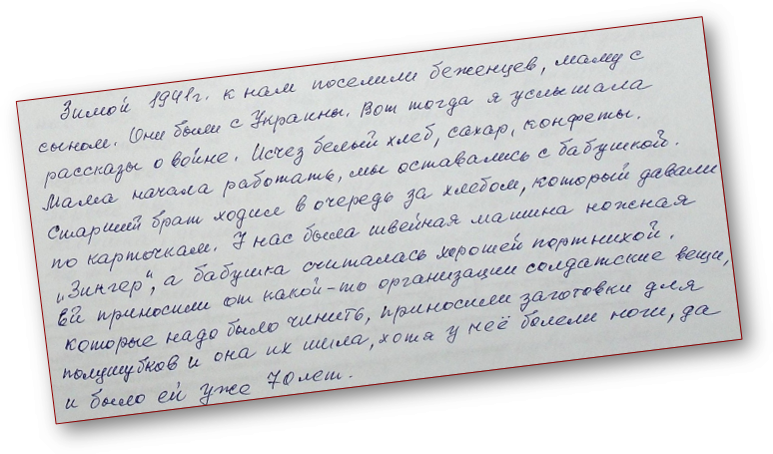 Зимой 1941г. к нам поселили беженцев, маму с
сыном. Они были с Украины. Вот тогда я услышала
рассказы о войне. Исчез белый хлеб, сахар, конфеты.
Мама начала работать, мы оставались с бабушкой.
Старший брат ходил в очередь за хлебом, который давали
по карточкам. У нас была швейная машина ножная
„Зингер", а бабушка считалась хорошей портнихой.
Ей приносили от какой-то организации солдатские вещи,
которые надо было чинить, приносили заготовки для
полушубков и она их шила, хотя у неё болели ноги, да
и было ей уже 70 лет.